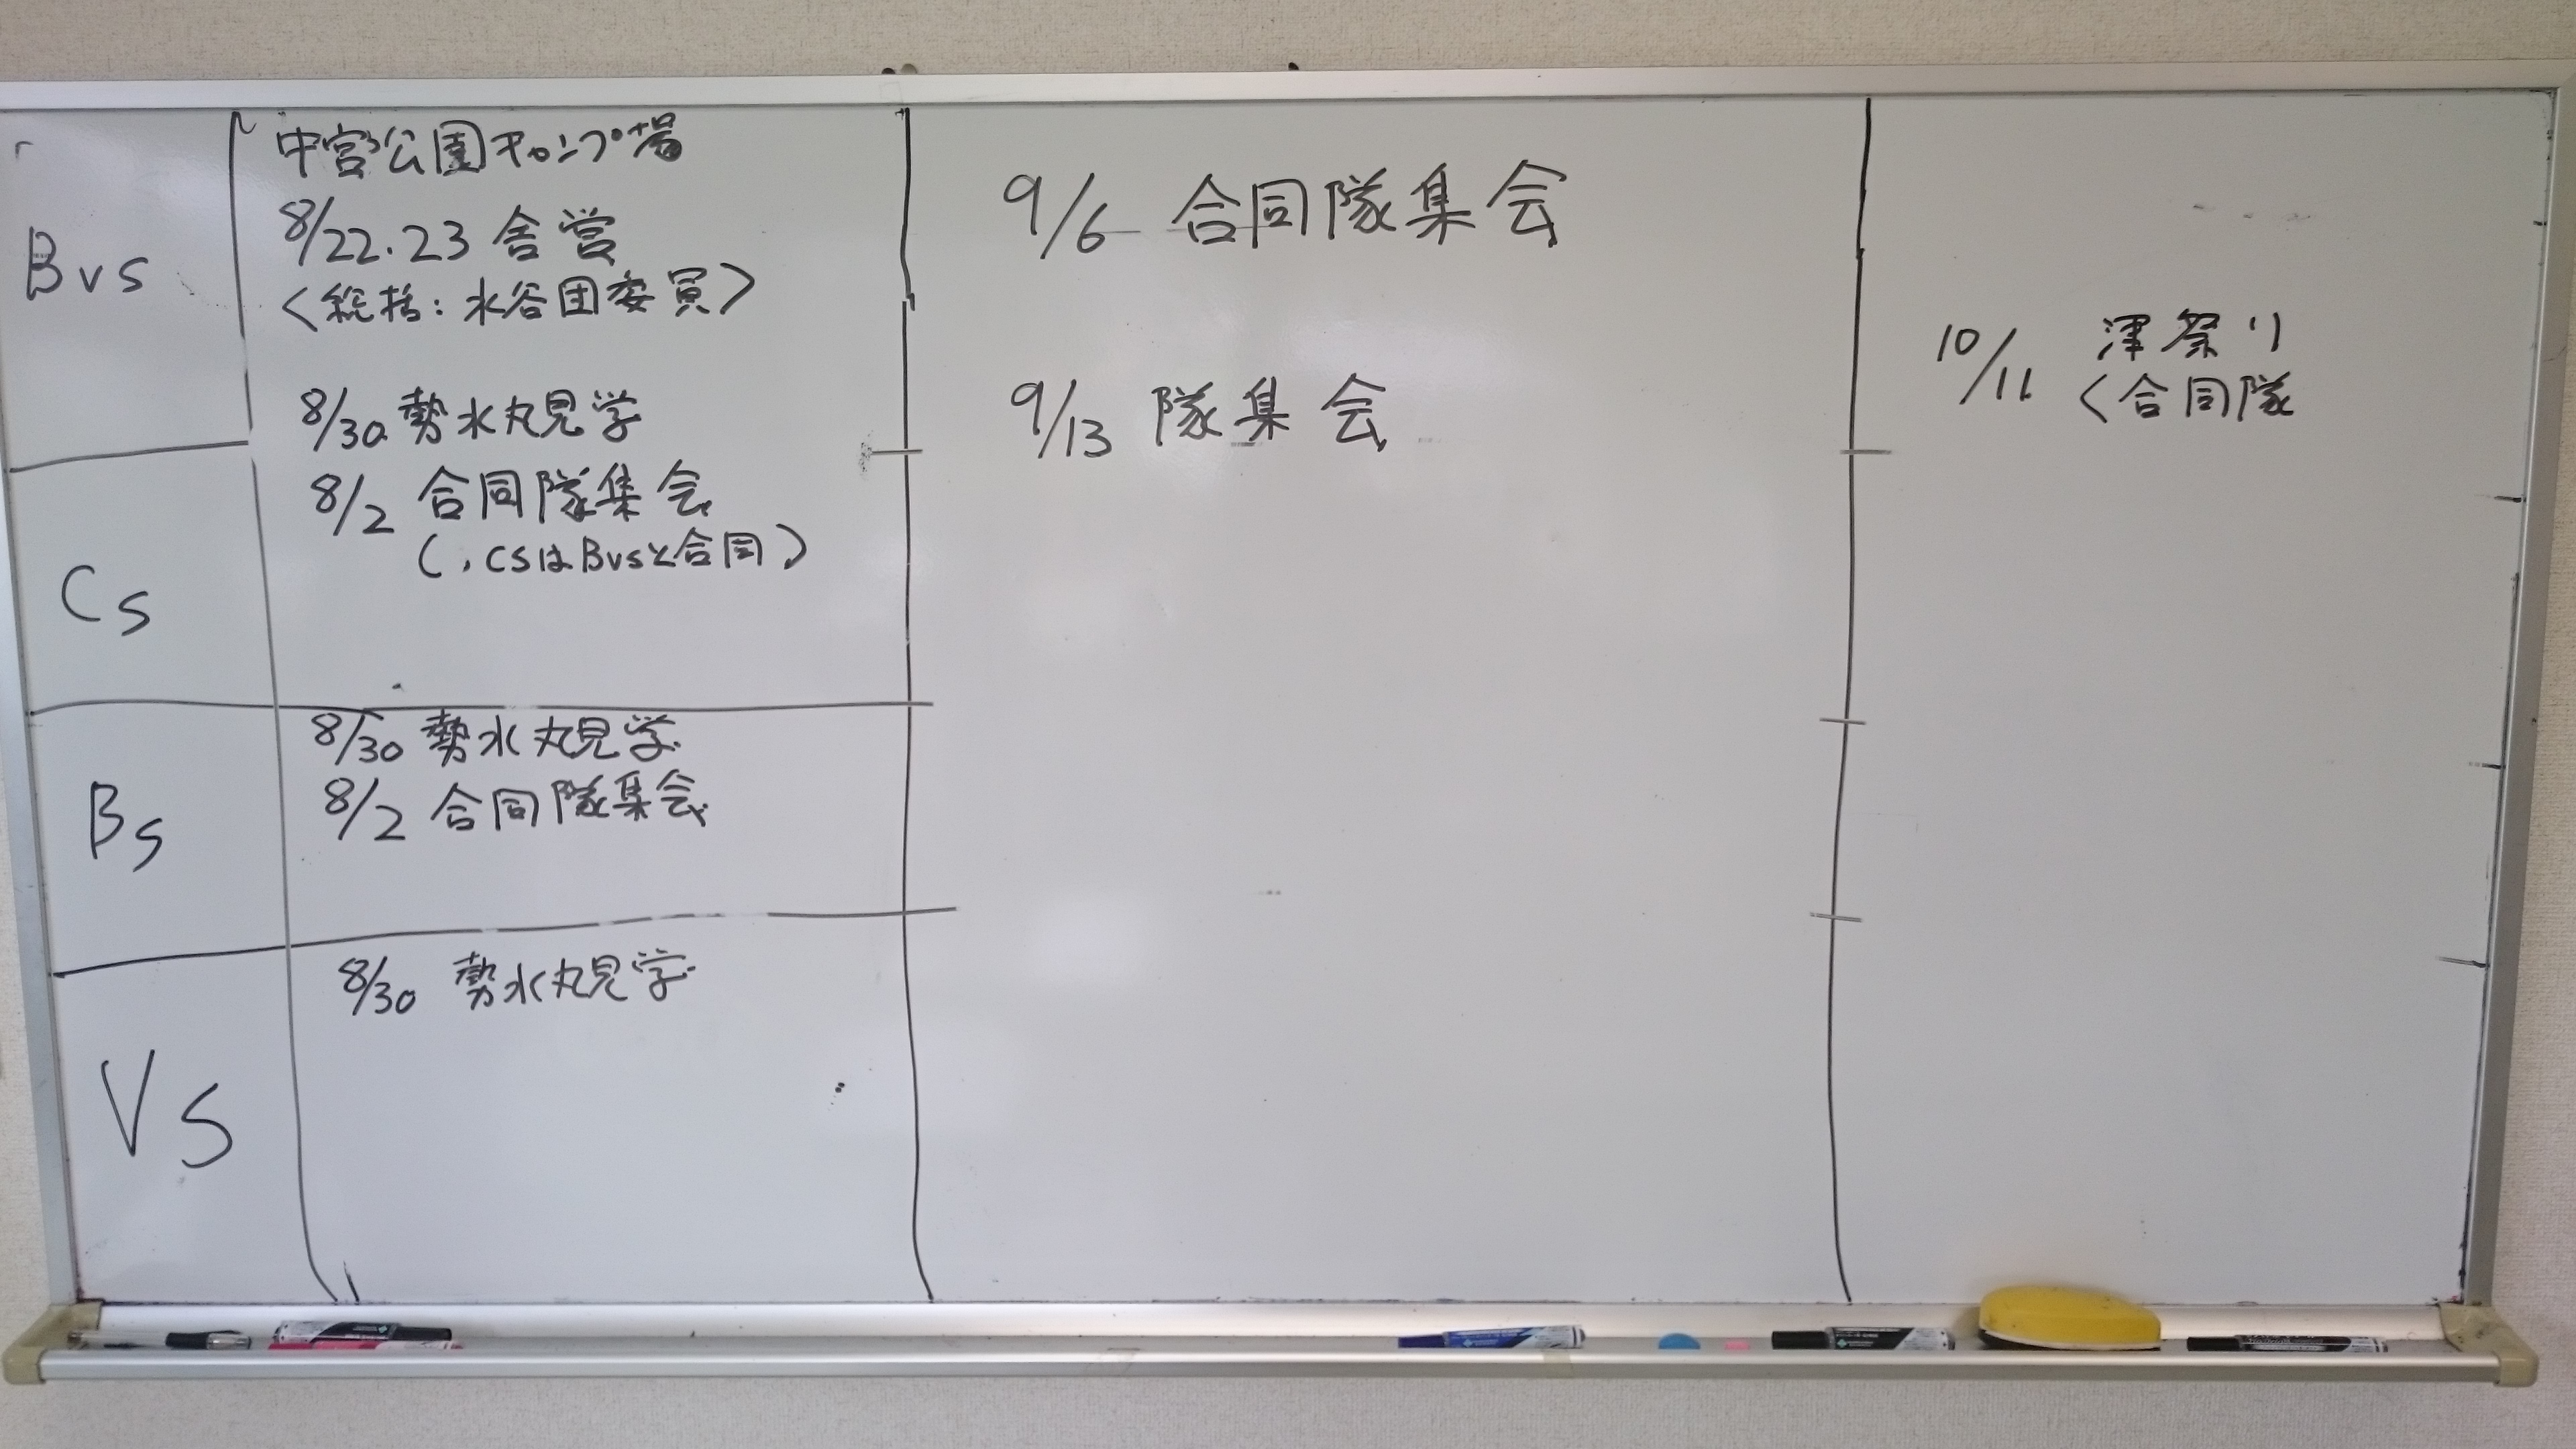 Bvs
中宮公園キャンプ場
8/22.23 舎営
<総括:水谷団委員>
8/30 勢水丸見学
9/6 合同隊集会
9/13 隊集会
10/11 津祭り
<合同隊
Cs
8/2 合同隊集会
(,CSはBvsと合同)
Bs
8/30 勢水丸見学
8/2 合同隊集会
Vs
8/30 勢水丸見学